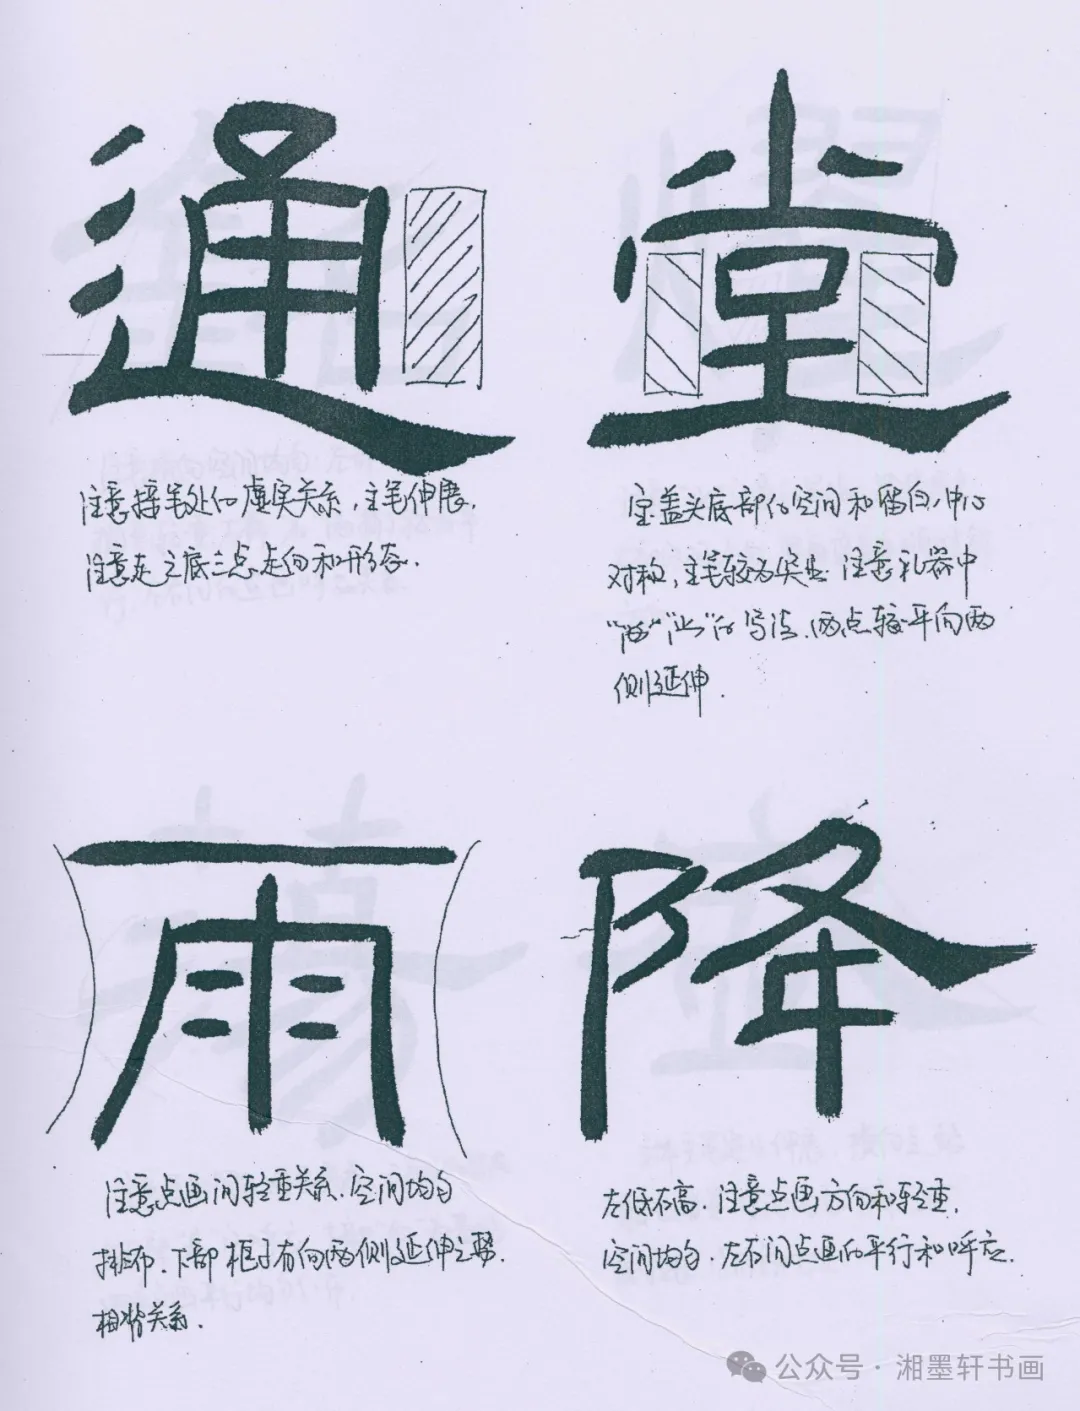 通
注意接笔处的虚实关系，主笔伸展.
注意走之底三点走向和形态.
堂
宝盖头底部的空间和留白，中心
对称，主笔较为突出 注意礼器中
的写法，两点较平向两
侧延伸.
雨
注意点画间轻重关系.空间均匀
排布.下部框子有向两侧延伸之势.
相背关系.
降
左低右高.注意点画方向和轻重.
空间均匀.左右间点画的平行和呼应.
公众号·湘墨轩书画